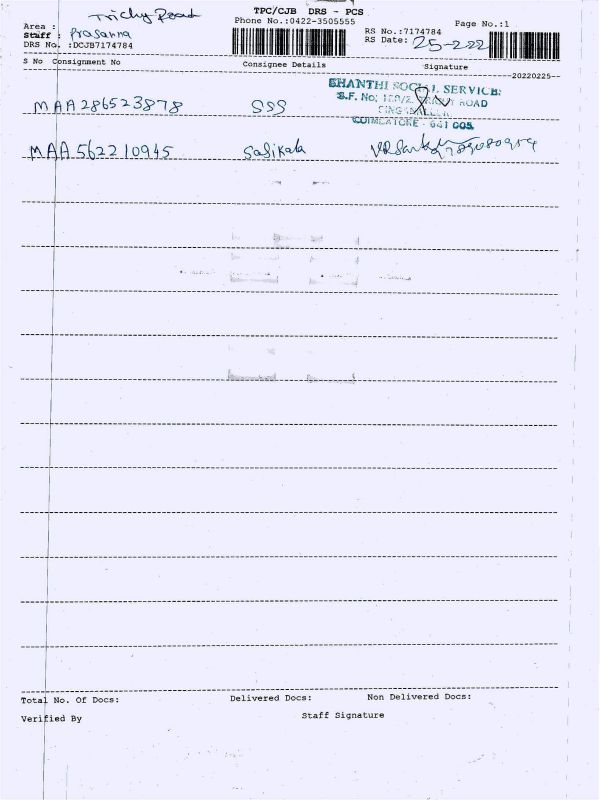 TPC/CJB DRS - PCS
Phone No.:0422-3505555
Page No.:1
Area : Trichy Road
Staff : Prasanna
DRS No. :DCJB7174784
RS No.:7174784
RS Date: 25-2-22
S No Consignment No Consignee Details Signature
20220225
SHANTHI SOCIAL SERVICE
S.F. No: ROAD
COIMBATORE - 641 005
MAA286523878 SSS
MAA562210945 Sasikala
Total No. Of Docs: Delivered Docs: Non Delivered Docs:
Verified By Staff Signature